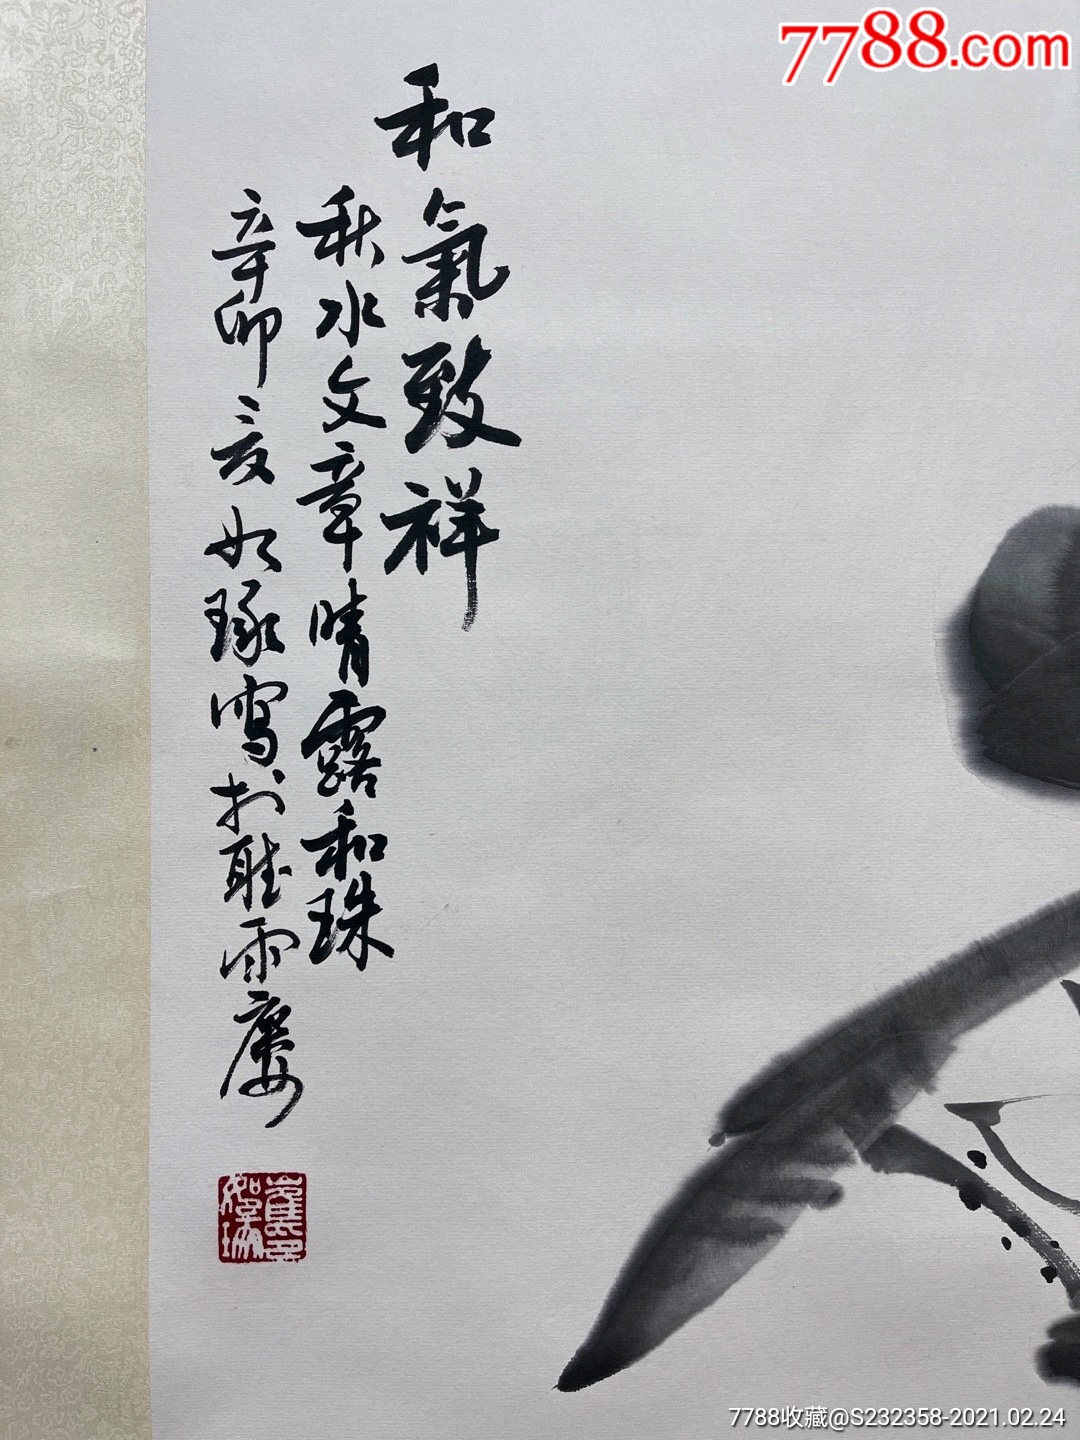 7788.com
和氣致祥
秋水文章晴露和珠
辛卯夏如琢寫於聽雨廔
7788收藏@S232358-2021.02.24